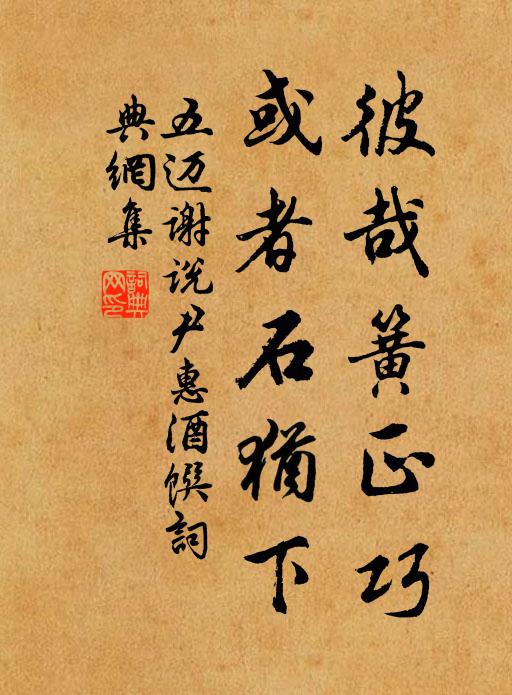 彼哉簧正巧
或者石犹下
五迈谢说尹惠酒馔词
典網集
詞典网印